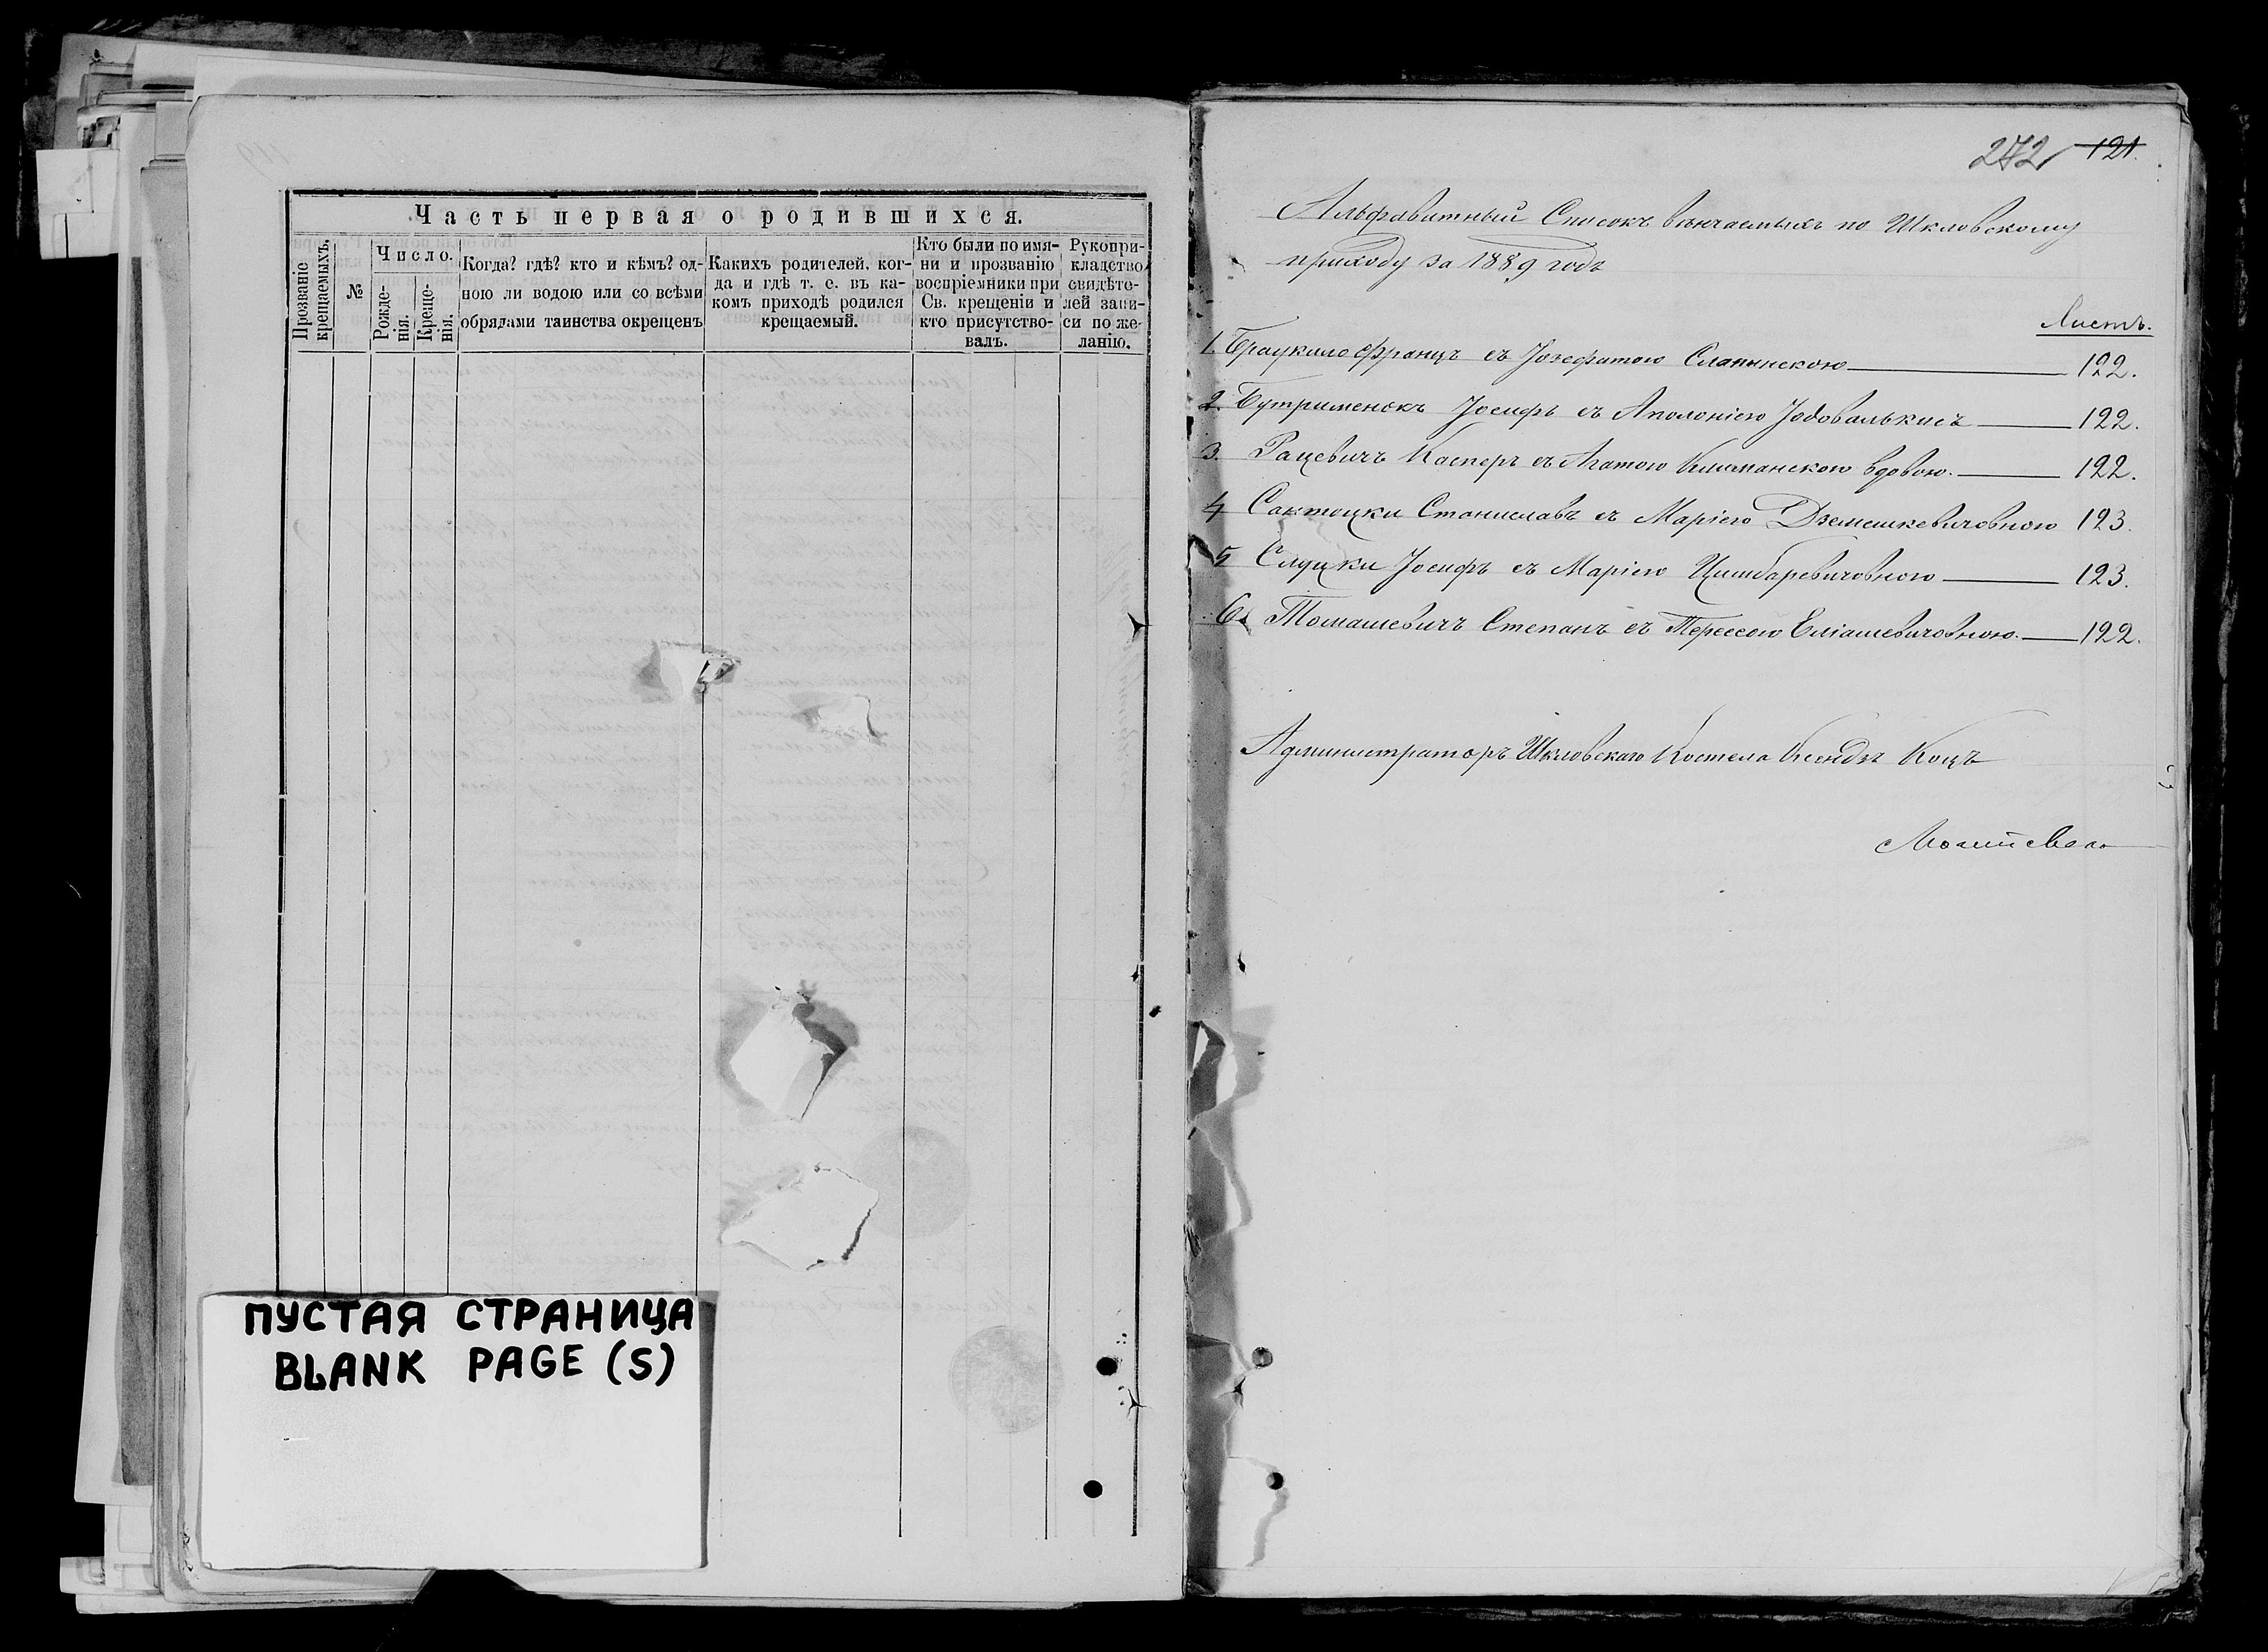 Часть первая о родившихся.
Прозваніе крещаемыхъ.
№
Число.
Рожде-
нія.
Креще-
нія.
Когда? гдѣ? кто и кѣмъ? од-
ною ли водою или со всѣми
обрядами таинства окрещенъ
Какихъ родителей, ког-
да и гдѣ т. е. въ ка-
комъ приходѣ родился
крещаемый.
Кто были по имя-
ни и прозванію
воспріемники при
Св. крещеніи и
кто присутство-
валъ.
Рукопри-
кладство
свидѣте-
лей запи-
си по же-
ланію.
ПУСТАЯ СТРАНИЦА
BLANK PAGE (S)
272 121.
Альфавитный Списокъ вѣнчаемыхъ по Шкловскому
приходу за 1889 годъ
Листъ.
1. Францъ съ Іозефатою 122.
2. Бутрименокъ Іосифъ съ Аполоніею 122.
3. Рацевичъ Касперъ съ Агатою вдовою. 122.
4 Станиславъ съ Маріею Дземешкевичовною 123.
5 Слуцки Іосифъ съ Маріею Цимбаревичовною 123.
6. Томашевичъ Степанъ съ Терессою Еліашевичовною. 122.
Администраторъ Шкловскаго Костела Ксендзъ Коцъ